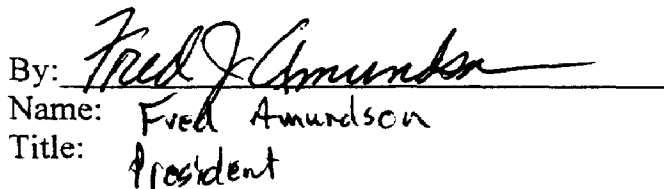 By: Fred J Amundson
Name: Fred Amundson
Title: President